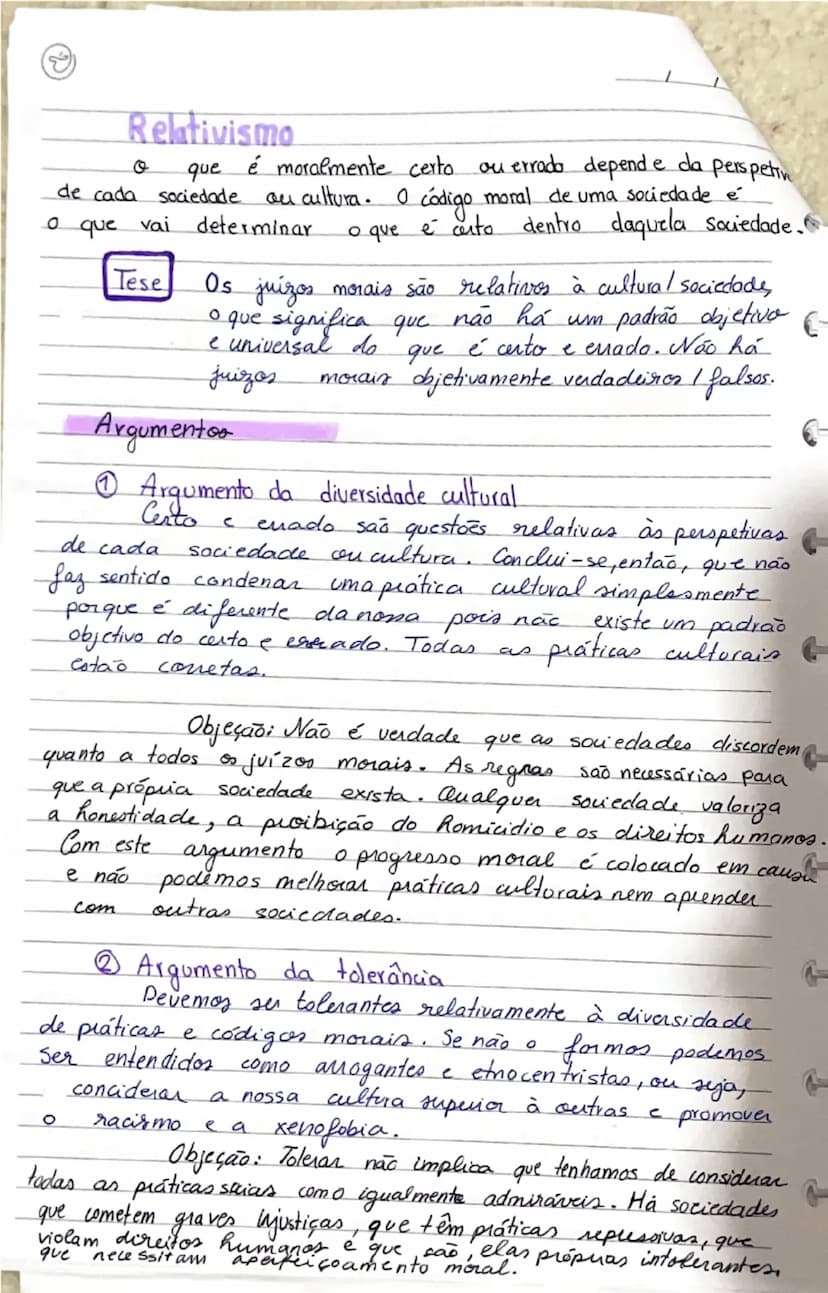 Relativismo
O que é moralmente certo ou errado depende da perspetiv
de cada sociedade ou cultura. O código moral de uma sociedade é
o que vai determinar o que é certo dentro daquela sociedade.
Tese
Os juízos morais são relativos à cultura/sociedade,
o que significa que não há um padrão objetivo
e universal do que é certo e errado. Não há
juízos morais objetivamente verdadeiros / falsos.
Argumentos
① Argumento da diversidade cultural
Certo e errado são questões relativas às perspetivas
de cada sociedade ou cultura. Conclui-se, então, que não
faz sentido condenar uma prática cultural simplesmente
porque é diferente da nossa pois não existe um padrão
objetivo do certo e errado. Todas as práticas culturais
estão corretas.
Objeção: Não é verdade que as sociedades discordem
quanto a todos os juízos morais. As regras são necessárias para
que a própria sociedade exista. Qualquer sociedade valoriza
a honestidade, a proibição do homicídio e os direitos humanos.
Com este argumento o progresso moral é colocado em causa
e não podemos melhorar práticas culturais nem aprender
com outras sociedades.
② Argumento da tolerância
Devemos ser tolerantes relativamente à diversidade
de práticas e códigos morais. Se não o formos podemos
ser entendidos como arrogantes e etnocentristas, ou seja,
conciderar a nossa cultura superior à outras e promover
o racismo e a xenofobia.
Objeção: Tolerar não implica que tenhamos de considerar
todas as práticas sociais como igualmente admiráveis. Há sociedades
que cometem graves injustiças, que têm práticas repressivas, que
violam direitos humanos e que são, elas próprias intolerantes,
que necessitam aperfeiçoamento moral.